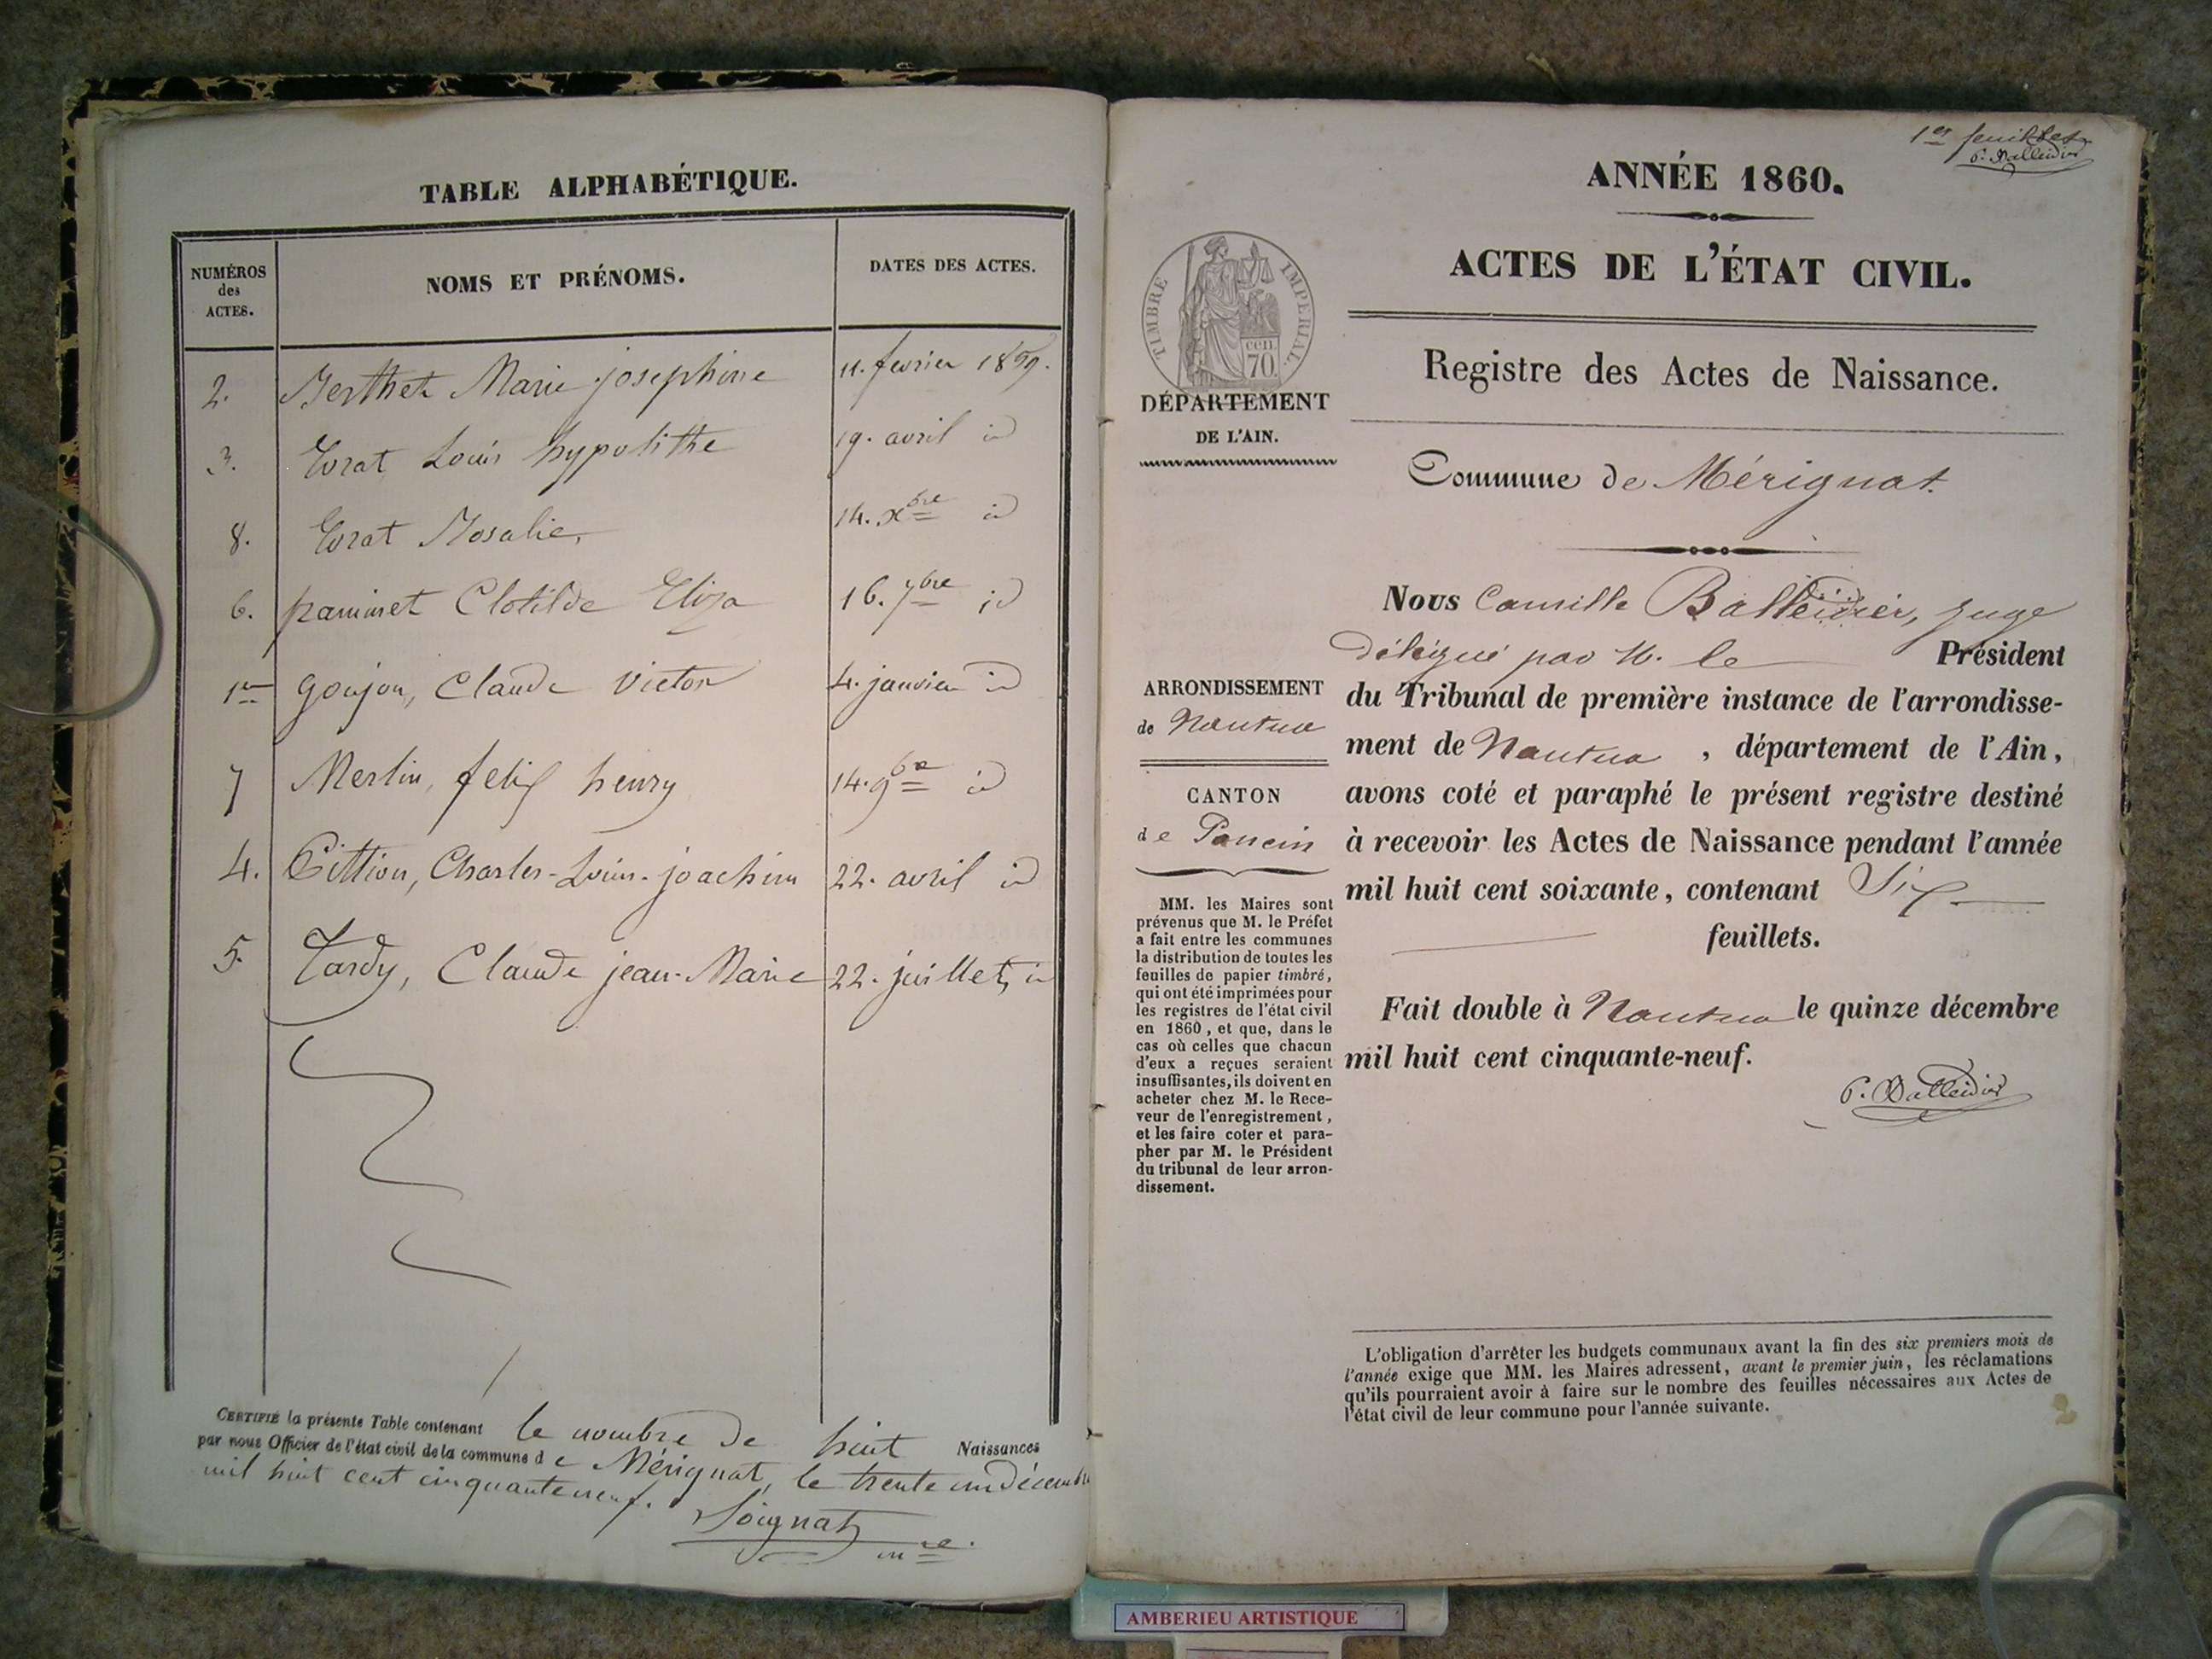 TABLE ALPHABÉTIQUE.
NUMÉROS des ACTES.
NOMS ET PRÉNOMS.
DATES DES ACTES.
2. Berthet Marie josephine 11. fevrier 1859.
3. Corat Louis hypolithe 19. avril id
8. Corat Rosalie, 14. xbre id
6. Clotilde Eliza 16. 7bre id
1er goujon, Claude Victor 4. janvier id
7 Merlin, felix henry 14. 9bre id
4. Pittion, Charles-Louis-joachim 22. avril id
5. Tardy, Claude jean-Marie 22. juillet, id
CERTIFIÉ la présente Table contenant le nombre de huit Naissances
par nous Officier de l'état civil de la commune de Mérignat, le trente un décembre
mil huit cent cinquante neuf.
Soignat
mre.
1er feuillet
C. Balleidier
ANNÉE 1860.
ACTES DE L'ÉTAT CIVIL.
TIMBRE IMPERIAL.
cen.
70.
Registre des Actes de Naissance.
DÉPARTEMENT
DE L'AIN.
Commune de Mérignat.
Nous Camille Balleidier, juge
délégué par M. le Président
du Tribunal de première instance de l'arrondisse-
ment de Nantua , département de l'Ain,
avons coté et paraphé le présent registre destiné
à recevoir les Actes de Naissance pendant l'année
mil huit cent soixante, contenant Six
feuillets.
Fait double à Nantua le quinze décembre
mil huit cent cinquante-neuf.
C. Balleidier
ARRONDISSEMENT
de Nantua
CANTON
de Poncin
MM. les Maires sont
prévenus que M. le Préfet
a fait entre les communes
la distribution de toutes les
feuilles de papier timbré,
qui ont été imprimées pour
les registres de l'état civil
en 1860, et que, dans le
cas où celles que chacun
d'eux a reçues seraient
insuffisantes, ils doivent en
acheter chez M. le Rece-
veur de l'enregistrement,
et les faire coter et para-
pher par M. le Président
du tribunal de leur arron-
dissement.
L'obligation d'arrêter les budgets communaux avant la fin des six premiers mois de
l'année exige que MM. les Maires adressent, avant le premier juin, les réclamations
qu'ils pourraient avoir à faire sur le nombre des feuilles nécessaires aux Actes de
l'état civil de leur commune pour l'année suivante.
AMBERIEU ARTISTIQUE